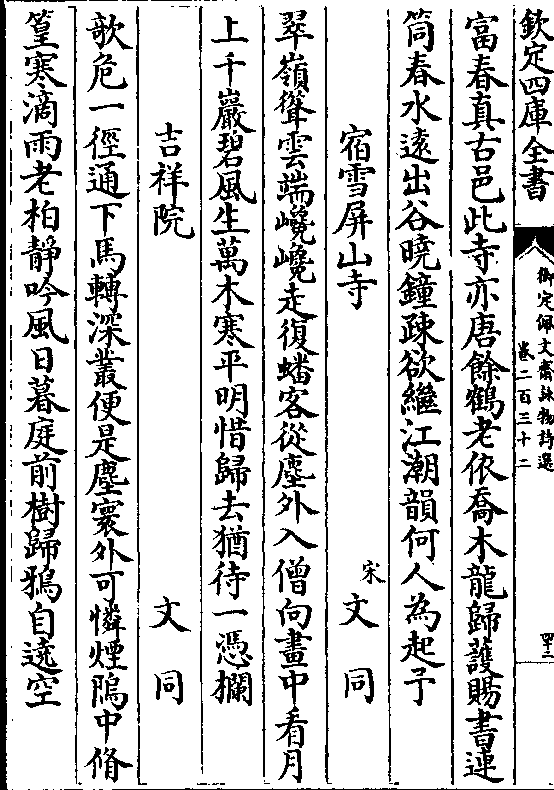 欽定四庫全書
御定佩文齋詠物詩選
卷二百三十二
四十二
富春真古邑此寺亦唐餘鶴老依喬木龍歸護賜書連
筒春水遠出谷曉鐘疎欲繼江潮韻何人為起予
宿雪屏山寺
宋文同
翠嶺聳雲端巉巉走復蟠客從塵外入僧向畫中看月
上千巖碧風生萬木寒平明惜歸去猶待一憑欄
吉祥院
文同
欹危一徑通下馬轉深叢便是塵寰外可憐煙隖中脩
篁寒滴雨老柏靜吟風日暮庭前樹歸鴉自遶空